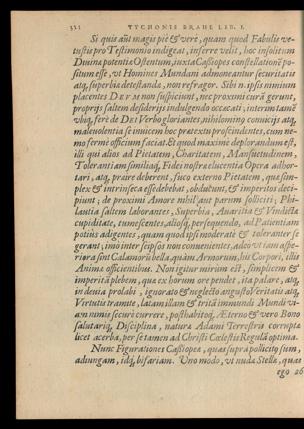 322 TYCHONIS BRAHE LIB. I.
Si quis aũt magis piè & verè, quam quod Fabulis ve-
tustis pro Testimonio indigeat, inferre velit, hoc insolitum
Diuina potentia Ostentum, iuxta Cassiopes constellationẽ po-
situm esse, vt Homines Mundani admoneantur securitatis
atq; superbiæ detestandæ, non refragor. Sibi n. ipsis nimium
placentes DEVM non suspiciunt, nec proximi curã gerunt,
proprijs saltem desiderijs indulgendo occæcati; interim tamẽ
vbiq; ferè de DEI Verbo gloriantes, nihilominq conuicijs atq,
maleuolentia se inuicem hoc prætextu proscindentes, cum ne-
mo fermè officium faciat. Et quod maximè deplorandum est,
illi qui alios ad Pietatem, Charitatem, Mansuetudinem,
Tolerantiam similiaq; Fidei nostræ elucentia Opera adhor-
tari, atq, præire deberent, suco externo Pietatem, quæ sim-
plex & intrinseca esse debebat, obducunt, & imperitos deci-
piunt; de proximi Amore nihil aut parum solliciti; Phi-
lautia saltem laborantes, Superbia, Auaritia & Vindictæ
cupiditate, tumescentes, aliosq, persequendo, ad Patientiam
potius adigentes, quam quod ipsi moderatè & toleranter se
gerant; imò inter seipsos non conuenientes, adeo vt iam aspe-
riora sint Calamorũ bella, quàm Armorum, his Corpori, illis
Animæ officientibus. Non igitur mirum est, simplicem &
imperitã plebem, quæ ex horum ore pendet, ita palare, atq,
in deuia prolabi, ignorato & neglecto angusto Veritatis atq,
Virtutis tramite, latam illam & tritã immundi Mundi vi-
am nimis securè currere, posthabitoq, Æterno & vero Bono
salutariq, Disciplina, natura Adami Terrestris corrupta
licet acerba, per se tamen ad Christi Cœlestis Regulã optima.
Nunc Figurationes Cassiopeæ, quas supra pollicitus sum,
adiungam, idq, bifariam. Vno modo, vt nudæ Stellæ, quas
ego 26